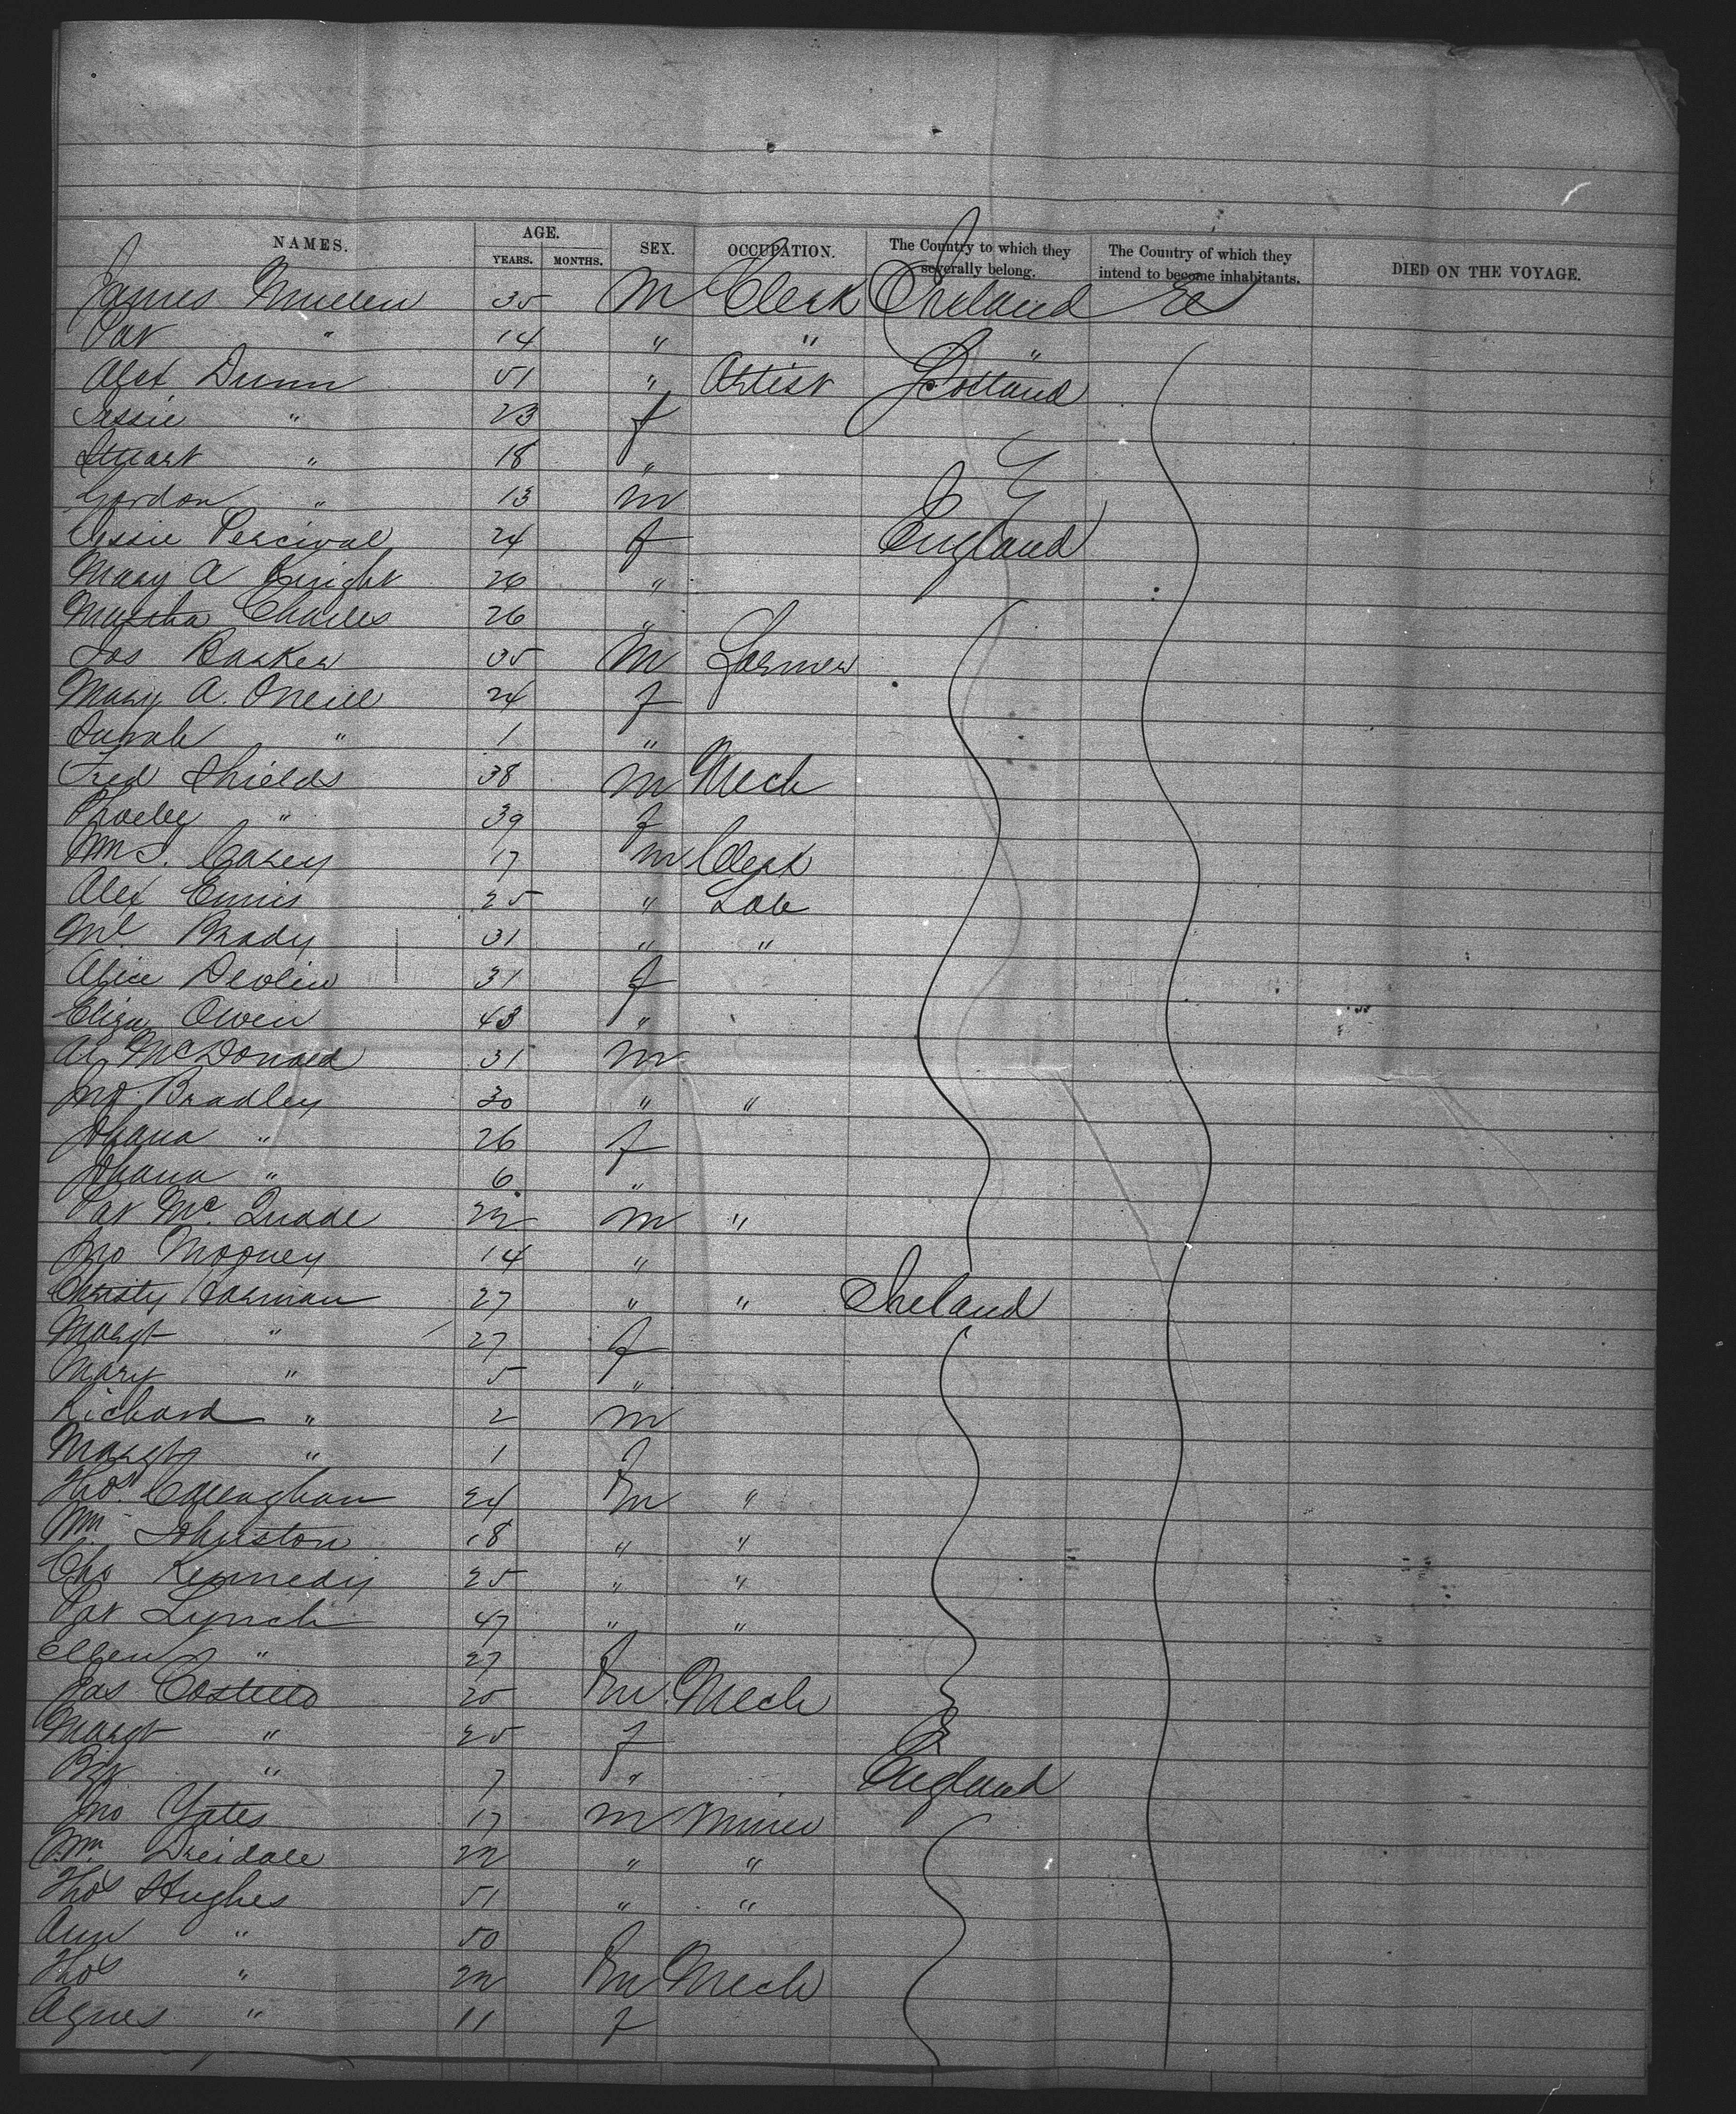 NAMES. AGE. YEARS. MONTHS. SEX. OCCUPATION. The Country to which they severally belong. The Country of which they intend to become inhabitants. DIED ON THE VOYAGE.
James Mullen 35 M Clerk Ireland
Pat " 14 " " "
Alex Dunn 51 " Artist Scotland
Jessie " 23 f
Stuart " 18 "
Gordon " 13 m
Jessie Percival 24 f England
Mary A Knight 26 "
Martha Charles 26 "
Jos Barker 35 M Farmer
Mary A. Oneill 24 f
Sarah " 1 "
Fred Shields 38 m Mech
Phoebe " 39 f
Wm J. Carey 17 m Clerk
Alex Ennis 25 " Lab
Ml Brady 31 " "
Alice Devlin 31 f
Eliza Owen 43 "
Al McDonald 31 m
Jno Bradley 30 " "
Johana " 26 f
Johana " 6 "
Pat McQuade 22 m "
Jno Mooney 14 "
Christy Harman 27 " " Ireland
Margt " 27 f
Mary " 5 "
Richard " 2 m
Margt " 1 f
Thos Callaghan 24 m "
Wm Johnston 18 " "
Chs Kennedy 25 " "
Pat Lynch 47 " "
Ellen " 27
Jas Costello 25 m Mech
Margt " 25 f
" 7 " England
Jno Yates 17 m Miner
Wm 22 " "
Thos Hughes 51 " "
Ann " 50
Thos " 22 m Mech
Agnes " 11 f